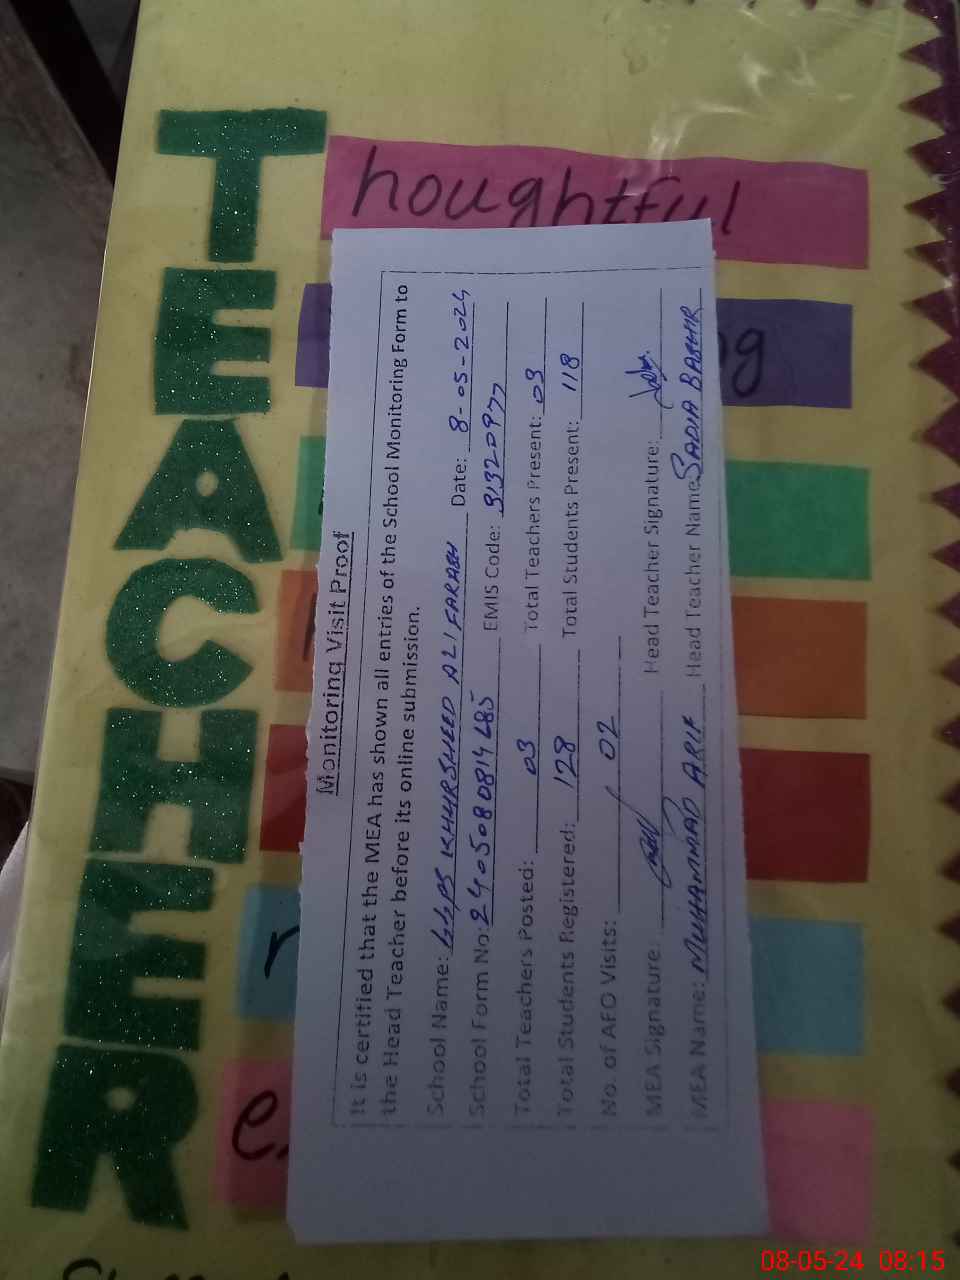 TEACHER
houghtful
Monitoring Visit Proof
It is certified that the MEA has shown all entries of the School Monitoring Form to
the Head Teacher before its online submission.
School Name: GGPS KHURSHEED ALI FARABH Date: 8-05-2024
School Form No: 2405080814485 EMIS Code: 31320977
Total Teachers Posted: 03 Total Teachers Present: 03
Total Students Registered: 128 Total Students Present: 118
No. of AEO Visits: 02
MEA Signature: Head Teacher Signature:
MEA Name: MUHAMMAD ARIF Head Teacher Name SADIA BASHIR
08-05-24 08:15